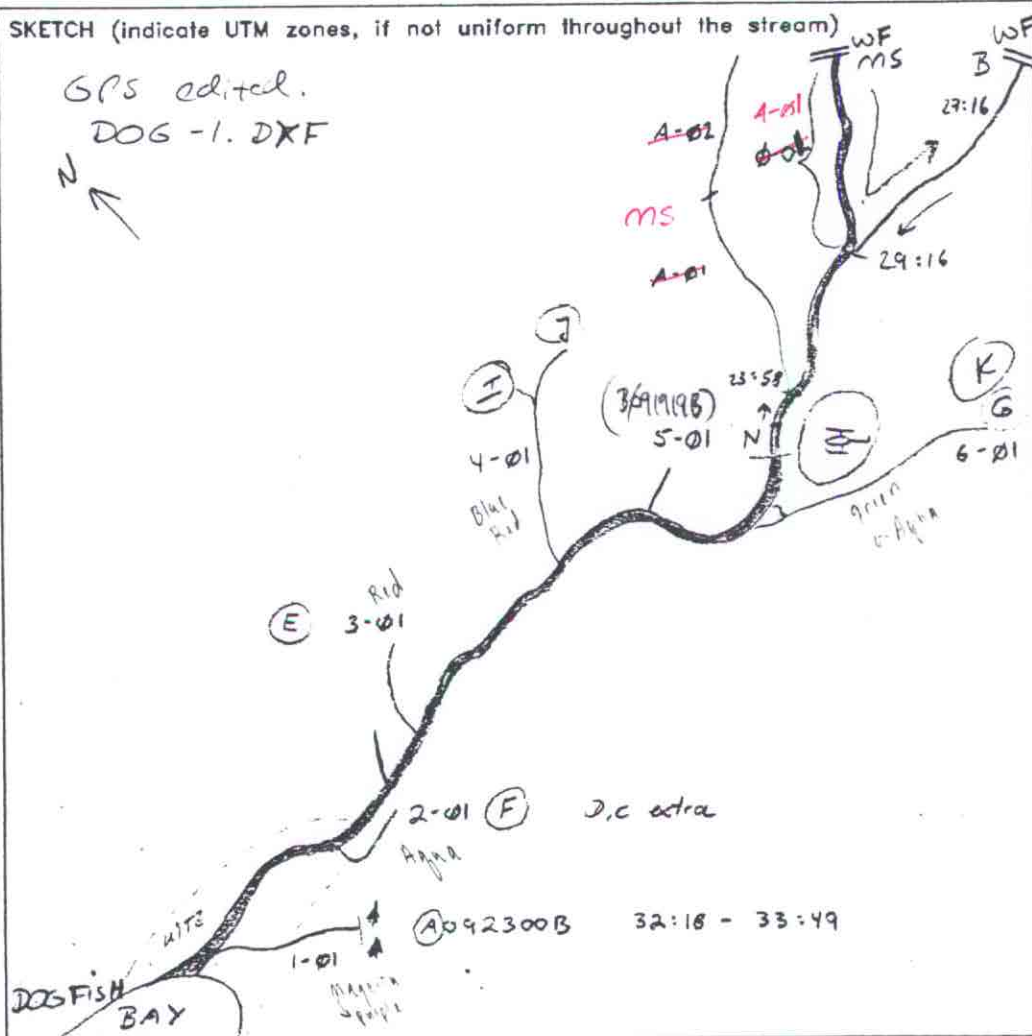 SKETCH (indicate UTM zones, if not uniform throughout the stream)
GPS edited.
DOG-1. DXF
N
WF
MS
WF
B
27:16
A-02
A-01
MS
A-01
29:16
J
I
4-01
Blue
Red
5-01
23:58
N
K
G
6-01
green
Aqua
Red
E 3-01
2-01 F D,C extra
Aqua
A 092300B 32:18 - 33:49
1-01
Magenta
purple
WITZ
DOGFISH
BAY